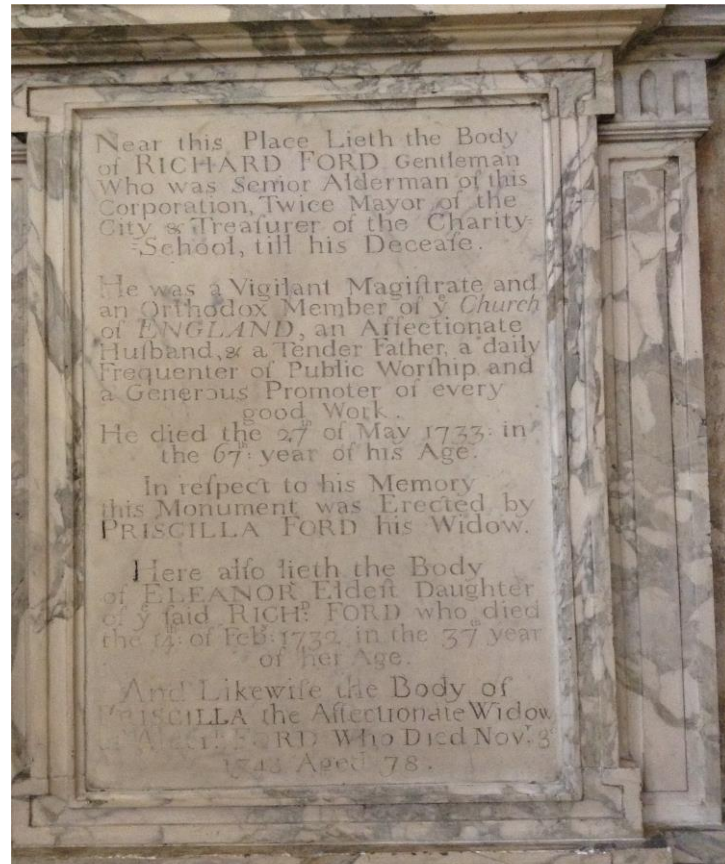 Near this Place Lieth the Body
of RICHARD FORD Gentleman
Who was Senior Alderman of this
Corporation, Twice Mayor of the
City & Treaſurer of the Charity=
=School, till his Deceaſe.
He was a Vigilant Magiſtrate and
an Orthodox Member of yͤ Church
of ENGLAND, an Affectionate
Huſband, & a Tender Father, a daily
Frequenter of Public Worſhip and
a Generous Promoter of every
good Work.
He died the 27ᵗʰ of May 1733: in
the 67ᵗʰ: year of his Age.
In reſpect to his Memory
this Monument was Erected by
PRISCILLA FORD his Widow.
Here alſo lieth the Body
of ELEANOR Eldeſt Daughter
of yͤ ſaid RICHᴰ. FORD who died
the 14ᵗʰ: of Febʳ: 1732 in the 37ᵗʰ year
of her Age.
And Likewiſe the Body of
PRISCILLA the Affectionate Widow
FORD Who Died Novʳ. 3ᵈ
Aged 78.